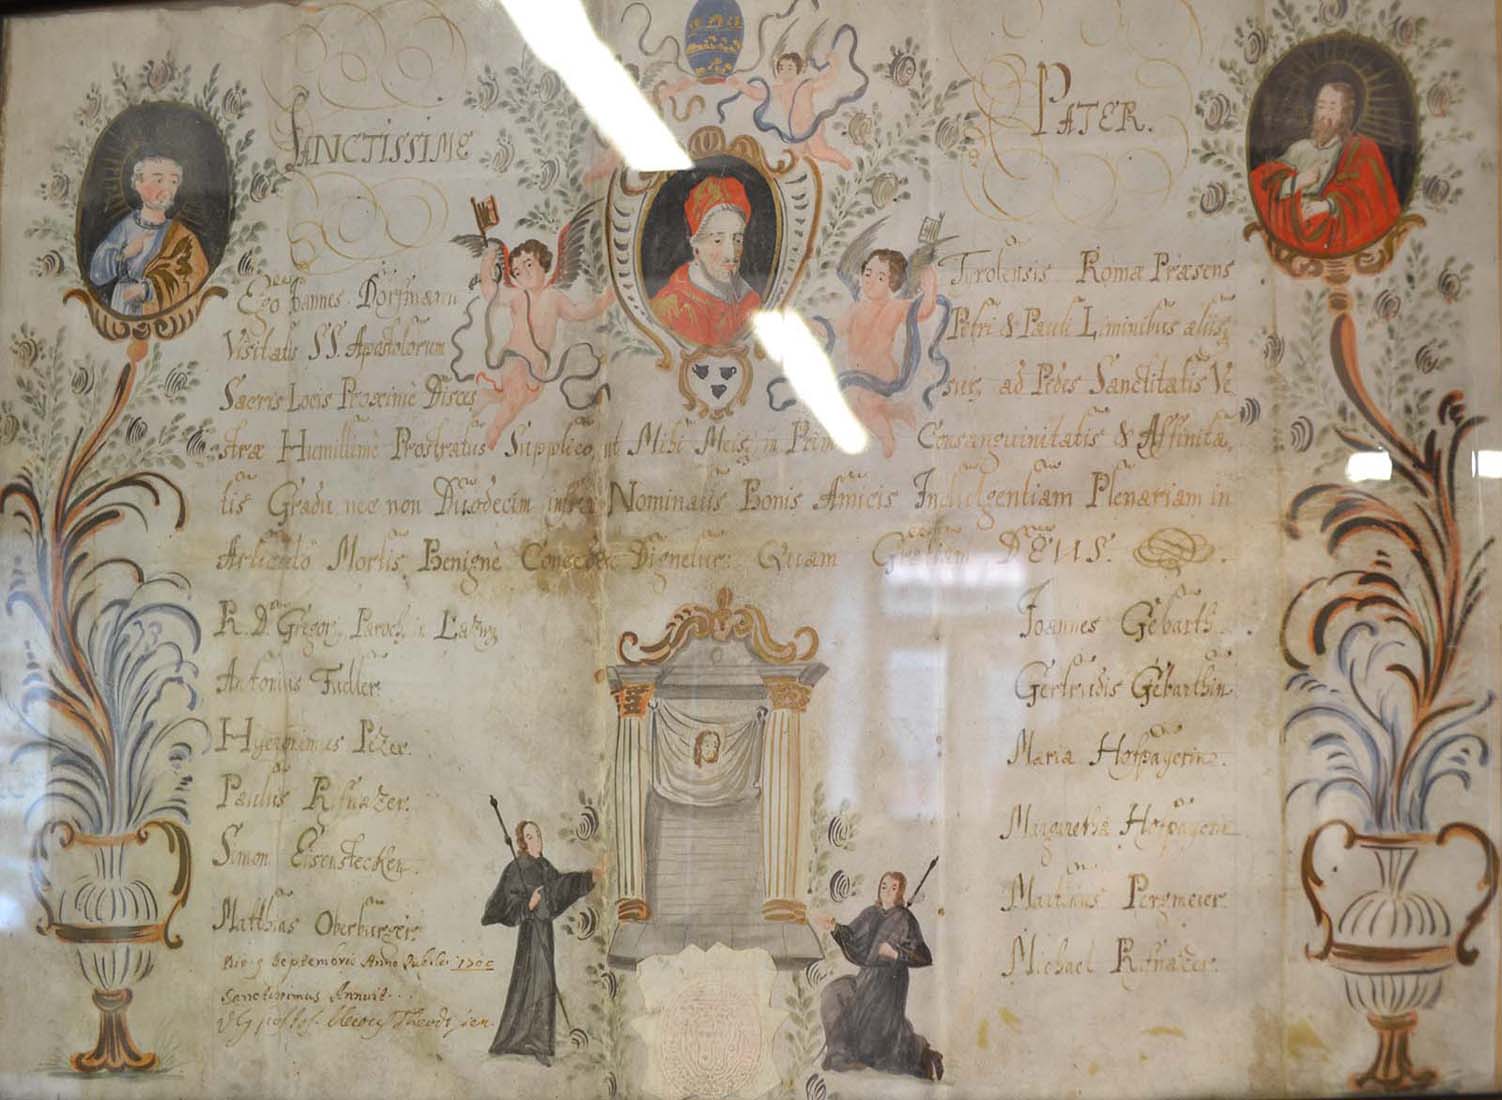 SANCTISSIME PATER.
Ego Joannes Dorfmann Tirolensis Romæ Præsens
Visitatis SS. Apostolorum Petri & Pauli Liminibus aliisq
Sacris Locis Proxime Disces suis, ad Pedes Sanctitatis Ve
stræ Humillime Prostratus Supplico, ut Mihi Meisq in Primo Consanguinitatis & Affinita
tis Gradu, nec non Duodecim infra Nominatis Bonis Amicis Indulgentiam Plenariam in
Articulo Mortis Benignè Concedere Dignetur: Quam Gratiam DEUS.
R. D. Gregor Paroch in
Antonius Fueller.
Hyeronimus
Paulus Rifnazer.
Simon Eisenstecken.
Matthias Oberburger.
Septembris Anno Jubilei 1700
Sanctissimus Annuit.
Joannes Gebarth.
Gertrudis Gebarthin.
Maria Hofpayerin.
Margaretha Hofpayerin
Martinus Pergmeier.
Michael Rifnazer.